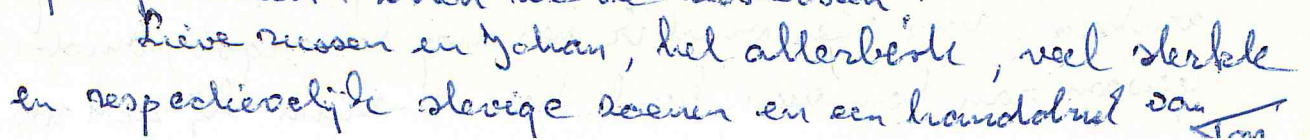 Lieve zussen en Johan, het allerbeste, veel sterkte
en respectievelijk stevige zoenen en een handdruk van